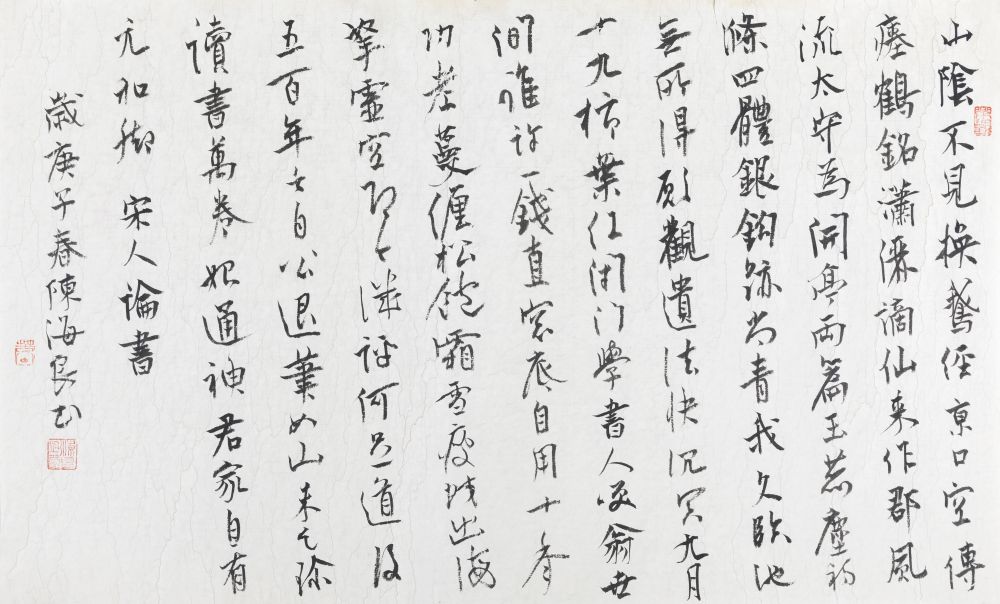 山陰不見換鵝經京口空傳
瘞鶴銘瀟灑謫仙来作郡風
流太守為開亭兩篇玉蕊塵初
滌四體銀鈎跡尚青我久臨池
無所得願觀遺法快沉冥九月
十九柿葉红閉门學書人笑翁世
间誰許一錢直窓底自用十年
功老蔓纏松飽霜雪瘦蛟出海
拏虛空即今譏評何足道後
五百年言自公退筆如山未足珍
讀書萬卷始通神君家自有
元和腳 宋人論書
歲庚子春陳海良书